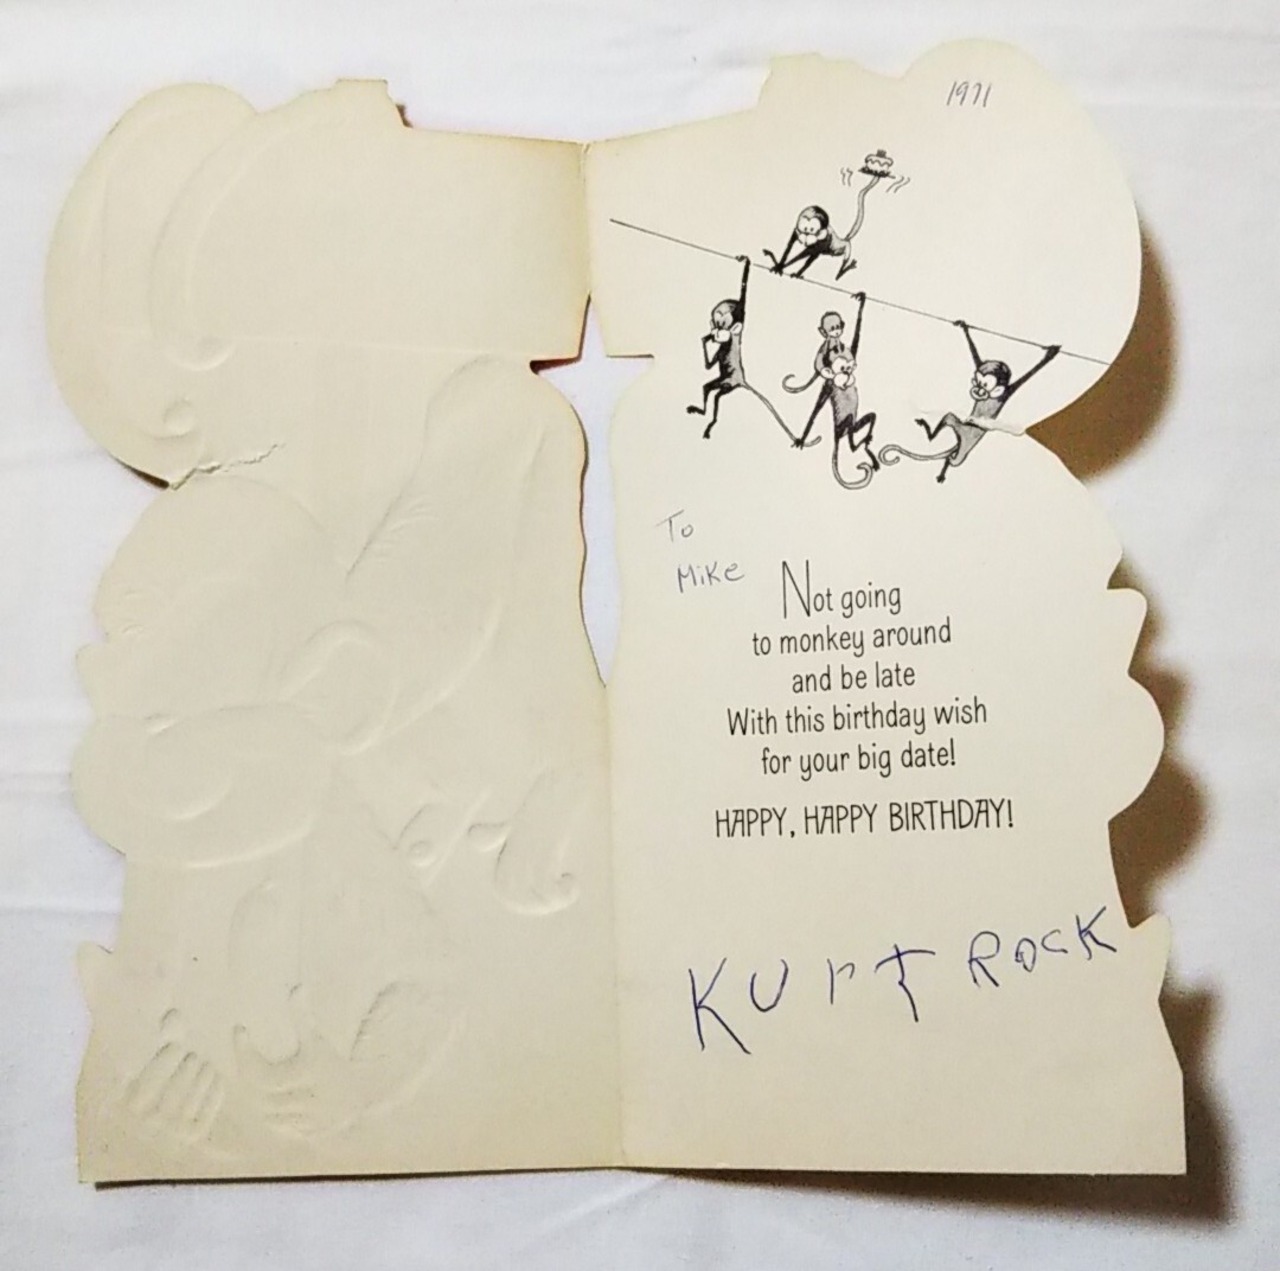 1971
To
Mike
Not going
to monkey around
and be late
With this birthday wish
for your big date!
HAPPY, HAPPY BIRTHDAY!
Kurt Rock